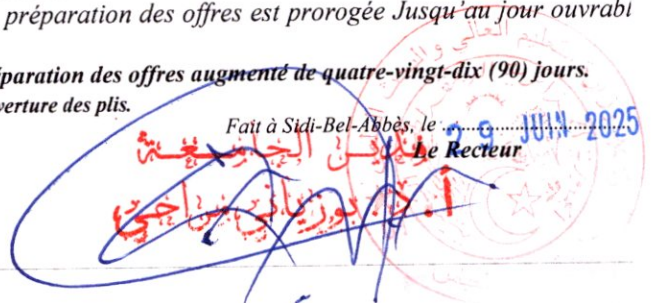 préparation des offres est prorogée Jusqu'au jour ouvrabl
paration des offres augmenté de quatre-vingt-dix (90) jours.
verture des plis.
Fait à Sidi-Bel-Abbès, le 29 JUIN 2025
Le Recteur
الجامعـــة
أ.د. بوزياني مراحي